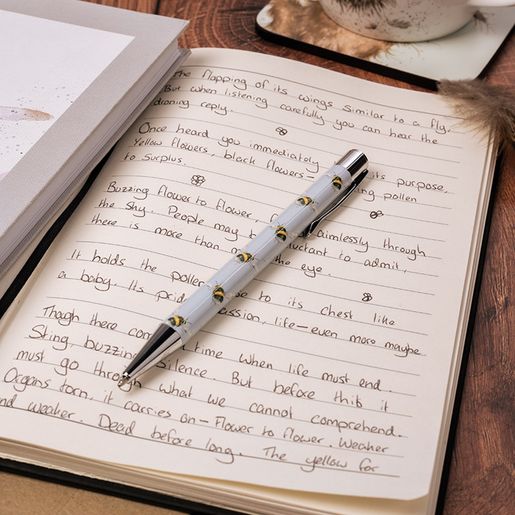 The flapping of its wings similar to a fly.
But when listening carefully you can hear the
droning reply.
Once heard you immediately its purpose,
Yellow flowers, black flowers— ing pollen
to surplus.
Buzzing flower to flower, aimlessly through
the sky. People may be reluctant to admit,
there is more than the eye.
It holds the pollen close to its chest like
a baby. Its pride passion, life—even more maybe
Though there comes time when life must end
Sting, buzzing silence. But before this it
must go through what we cannot comprehend.
Organs torn, it carries on— Flower to flower. Weaker
and weaker. Dead before long. The yellow for